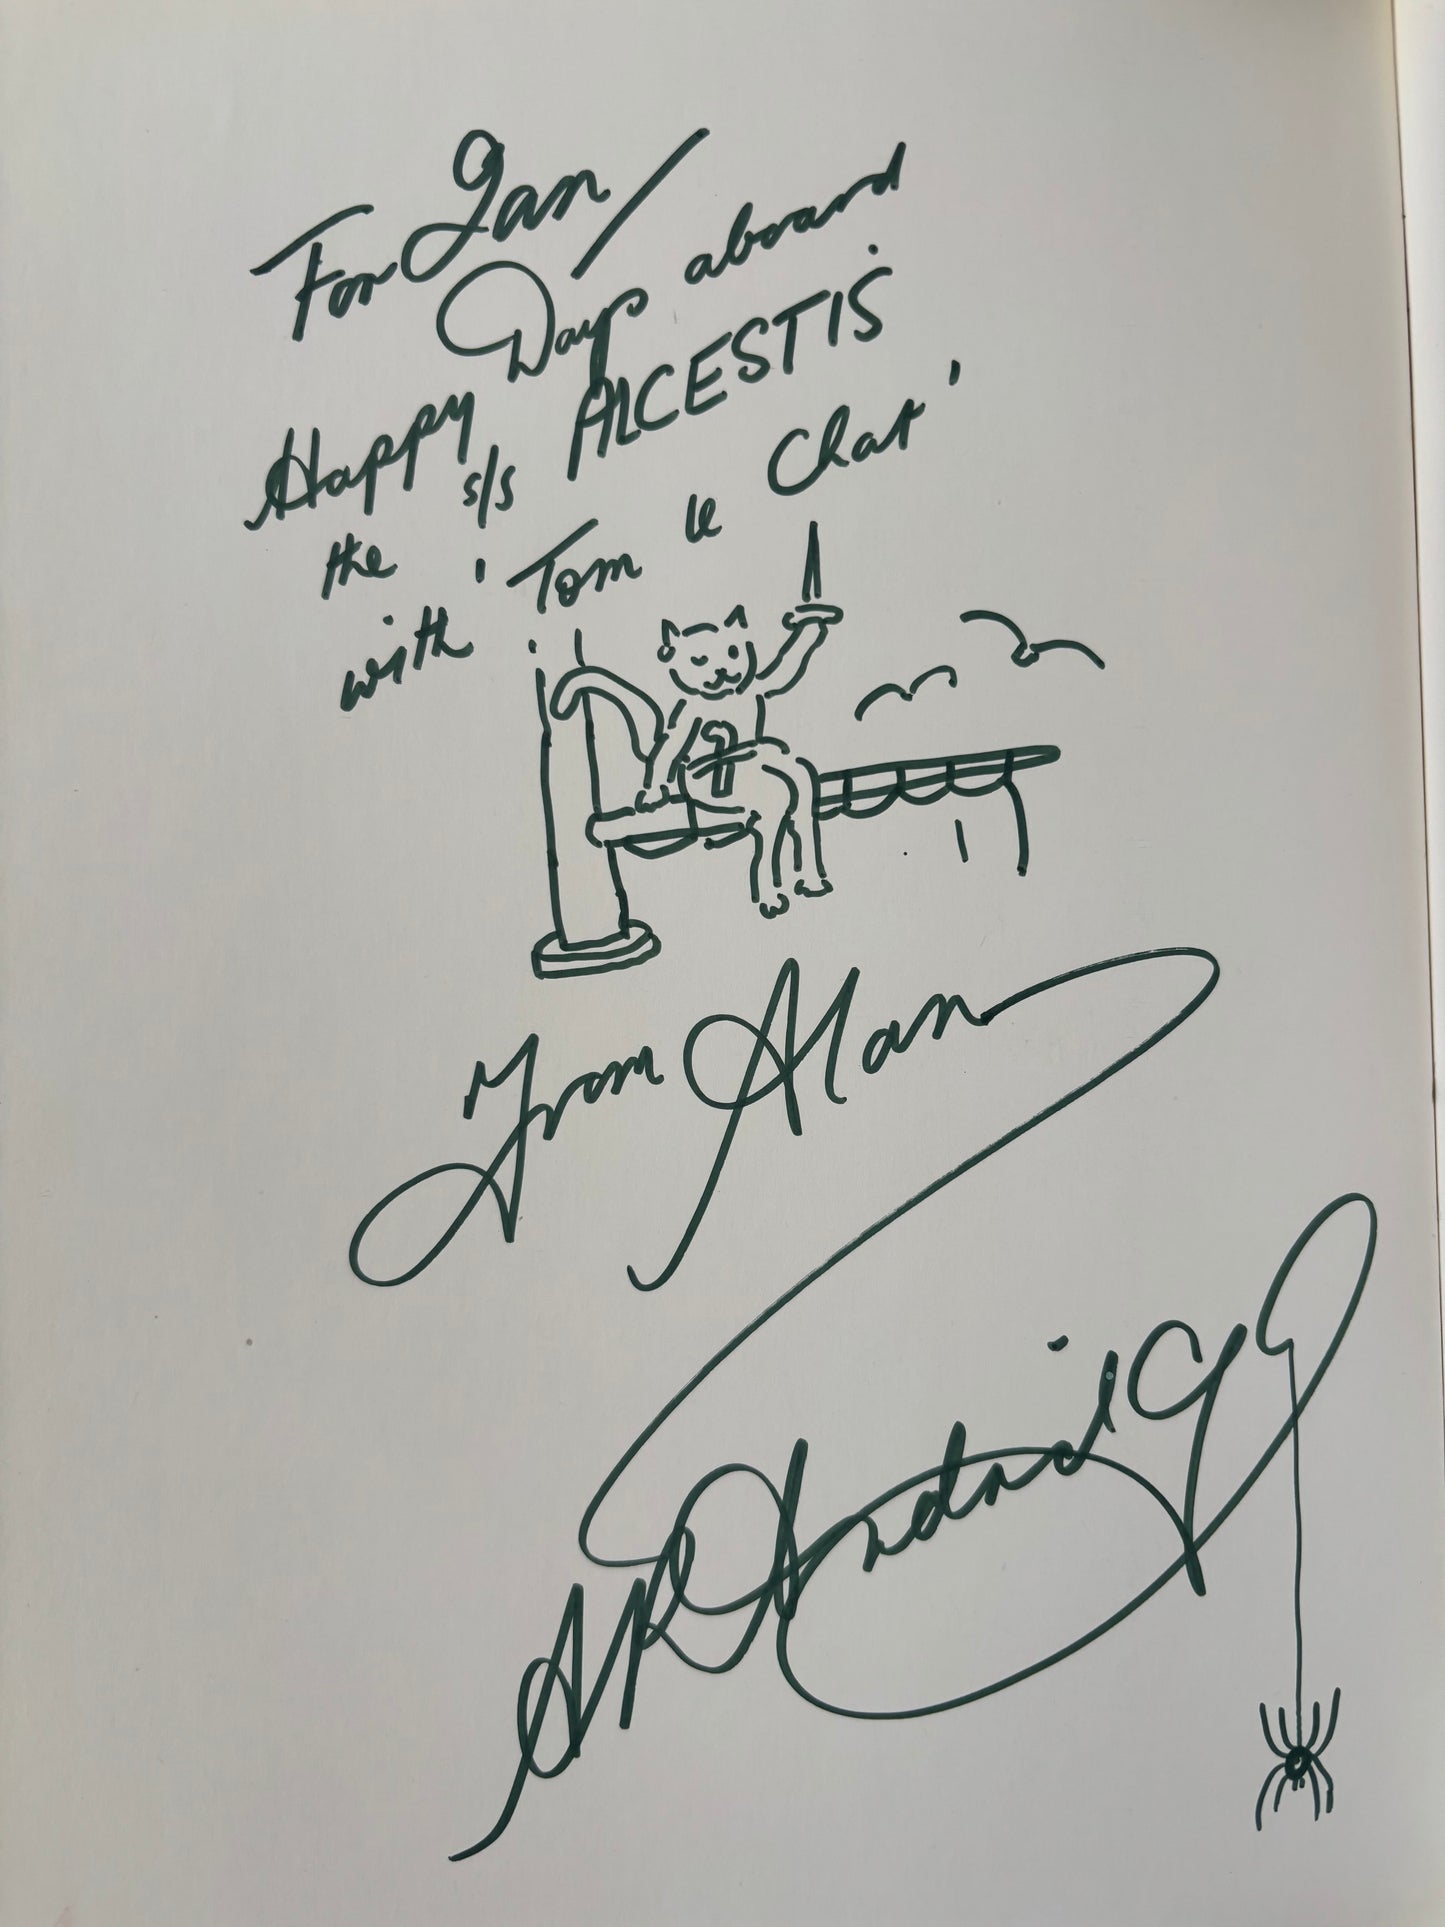 For Ian/
Happy Days aboard
the s/s ALCESTIS.
with 'Tom le Chat'
From Alan
Aldridge